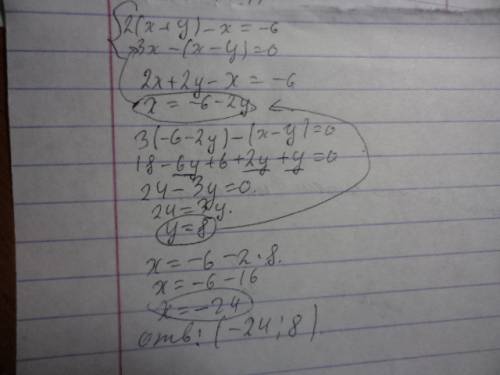 2(x+y)-x=-6
3x-(x-y)=0
2x+2y-x=-6
x=-6-2y
3(-6-2y)-(x-y)=0
18-6y+6+2y+y=0
24-3y=0.
24=3y.
y=8
x=-6-2·8.
x=-6-16
x=-24
отв: (-24; 8)